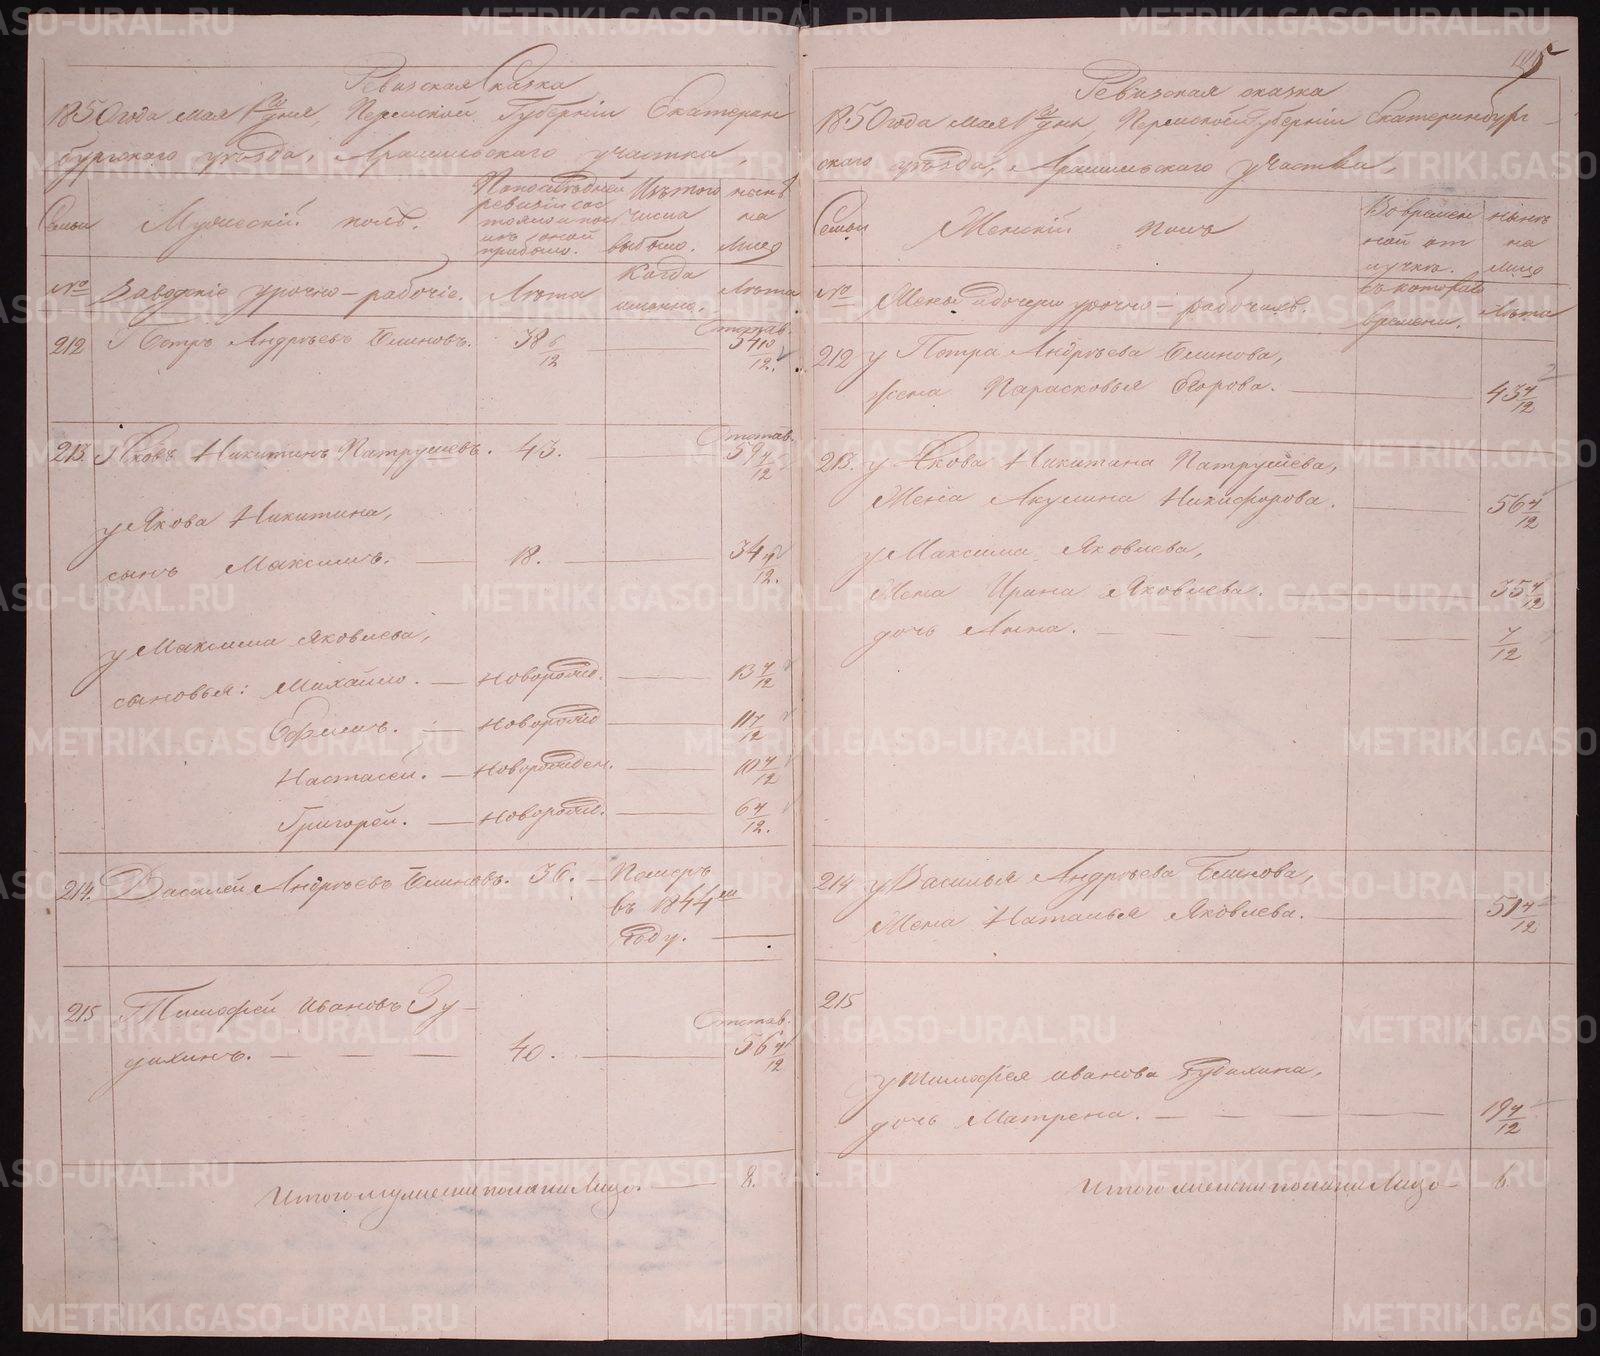 Ревизская Сказка
1850 года мая 1го дня, Пермской Губернии Екатерин
бургскаго уезда, Арамильскаго участка,
Семьи
Мужеский полъ.
По последней ревизии состояло и после оной прибыло.
Изъ того числа выбыло.
ныне на лицо
№
Заводские урочно-рабочие.
Лета
Когда именно.
Лета
212 Петръ Андреевъ Блиновъ. 38 6/12 Отстав. 54 10/12.
213. Яковъ Никитинъ Патрушевъ. 43. Отстав. 59 4/12
у Якова Никитина,
сынъ Максимъ. 18. 34 4/12.
у Максима Яковлева,
сыновья: Михайло. новорожд. 13 4/12
Ефимъ. новорожд 11 4/12
Настасей. новорожден. 10 4/12
Григорей. новорожд. 6 4/12.
214. Василей Андреевъ Блиновъ. 36. Померъ
въ 1844м
году.
215 Тимофей Ивановъ
Отстав.
40. 56 4/12
Итого мужеска пола на Лицо. 8.
5
Ревизская сказка
1850 года мая 1го дня, Пермской губернии Екатеринбург
скаго уезда, Арамильскаго участка,
Семьи
Женский полъ
Во временной отлучке.
ныне на лицо
№
Жены и дочери урочно-рабочихъ.
въ которого времени.
Лета
212 у Петра Андреева Блинова,
жена Парасковья Егорова. 43 4/12
213. у Якова Никитина Патрушева,
Жена Акулина Никифорова. 56 4/12
у Максима Яковлева,
Жена Ирина Яковлева. 35 4/12
дочь Анна. 7/12
214 у Василья Андреева Блинова,
Жена Наталья Яковлева. 51 4/12
215
у Тимофея Иванова
дочь Матрена. 19 4/12
Итого женска пола на Лицо 6
METRIKI.GASO-URAL.RU